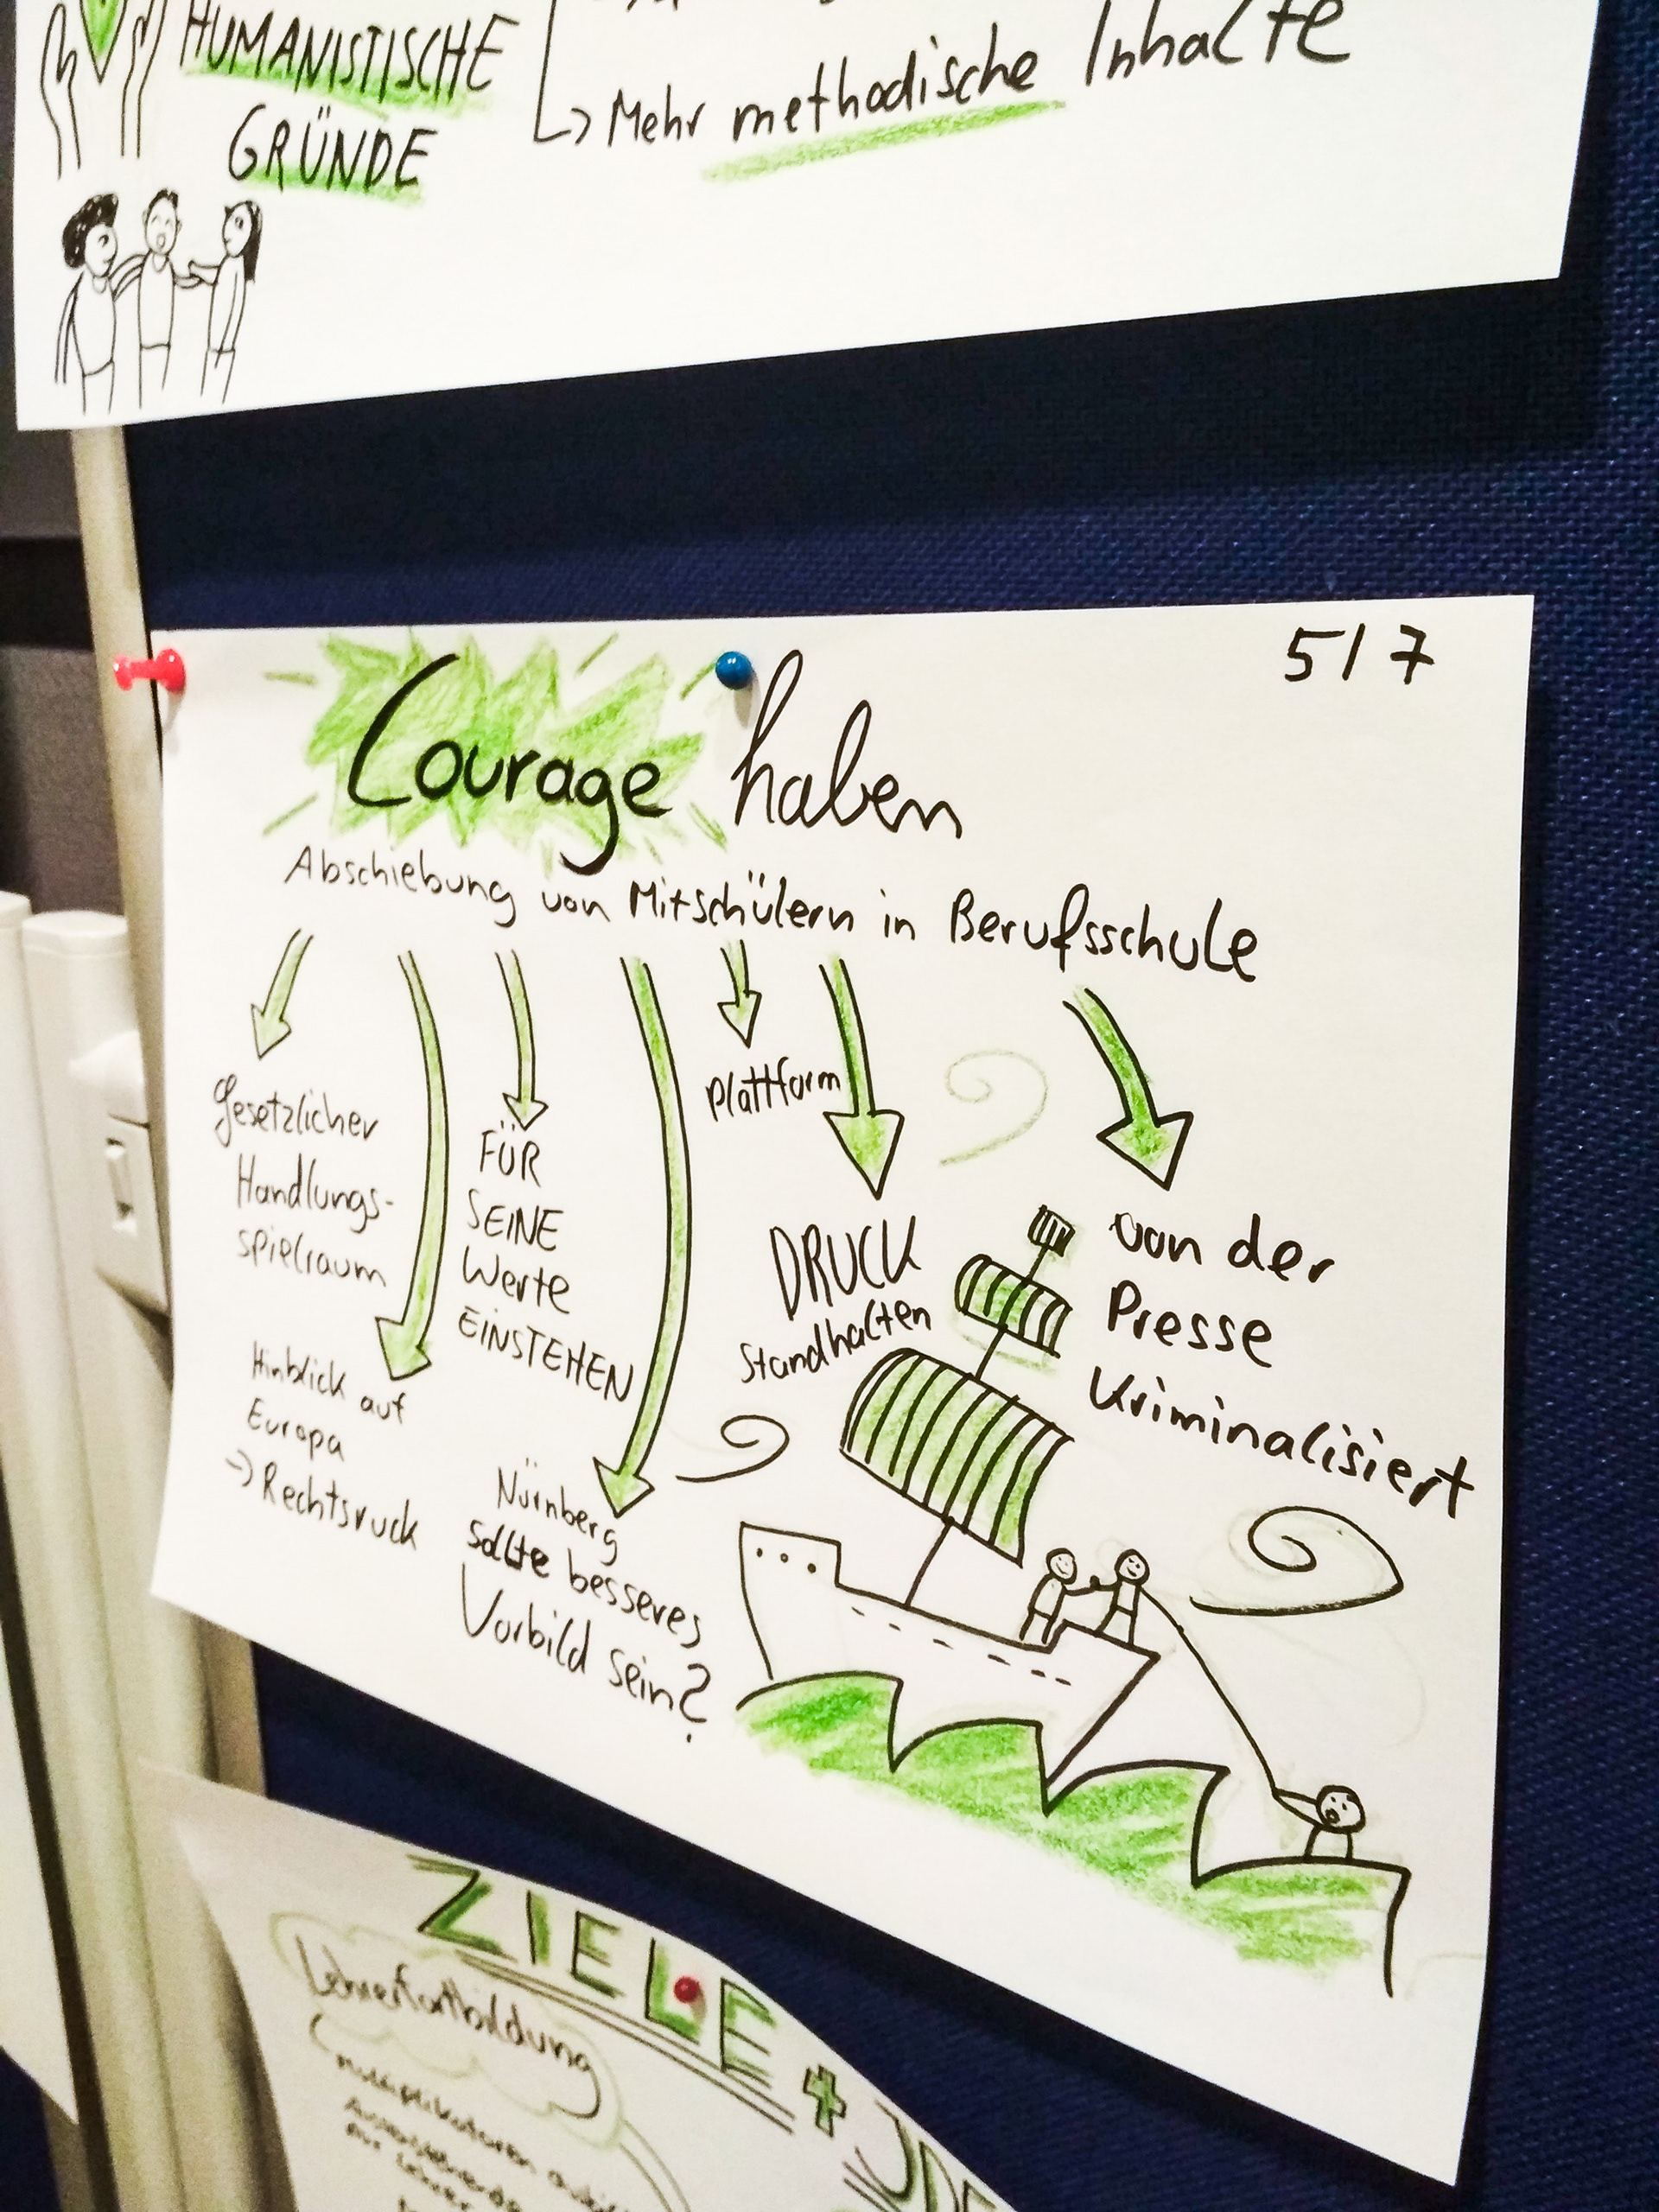 HUMANISTISCHE
GRÜNDE
→ Mehr methodische Inhalte
5/7
Courage haben
Abschiebung von Mitschülern in Berufsschule
gesetzlicher
Handlungs-
spielraum
Hinblick auf
Europa
→ Rechtsruck
FÜR
SEINE
Werte
EINSTEHEN
Nürnberg
sollte besseres
Vorbild sein?
Plattform
DRUCK
standhalten
von der
Presse
kriminalisiert
ZIELE +
Lehrerfortbildung